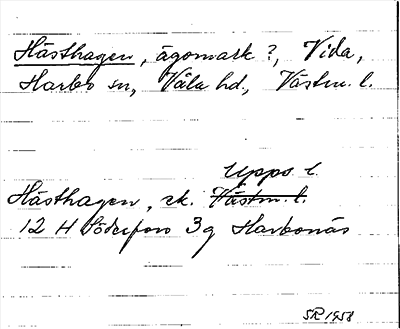 Hästhagen, ägomark ?, Vida,
Harbo sn, Våla hd., Västm. l.
Upps. l.
Hästhagen, ek. Västm. l.
12 H Söderfors 3 g Harbonäs
SR 1958